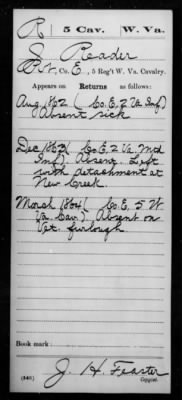 R | 5 Cav. | W. Va.
J. Reader
Pvt., Co. E., 5 Reg't W. Va. Cavalry.
Appears on Returns as follows:
Aug. 1862 (Co. E, 2 Va Inf)
Absent sick
Dec 1863 (Co. E, 2 Va. Mtd
Inf) Absent. Left
with detachment at
New Creek.
March 1864 (Co. E, 5 W.
Va. Cav.) Absent on
Vet. furlough
Book mark:
J. H. Feaster
(546) Copyist.